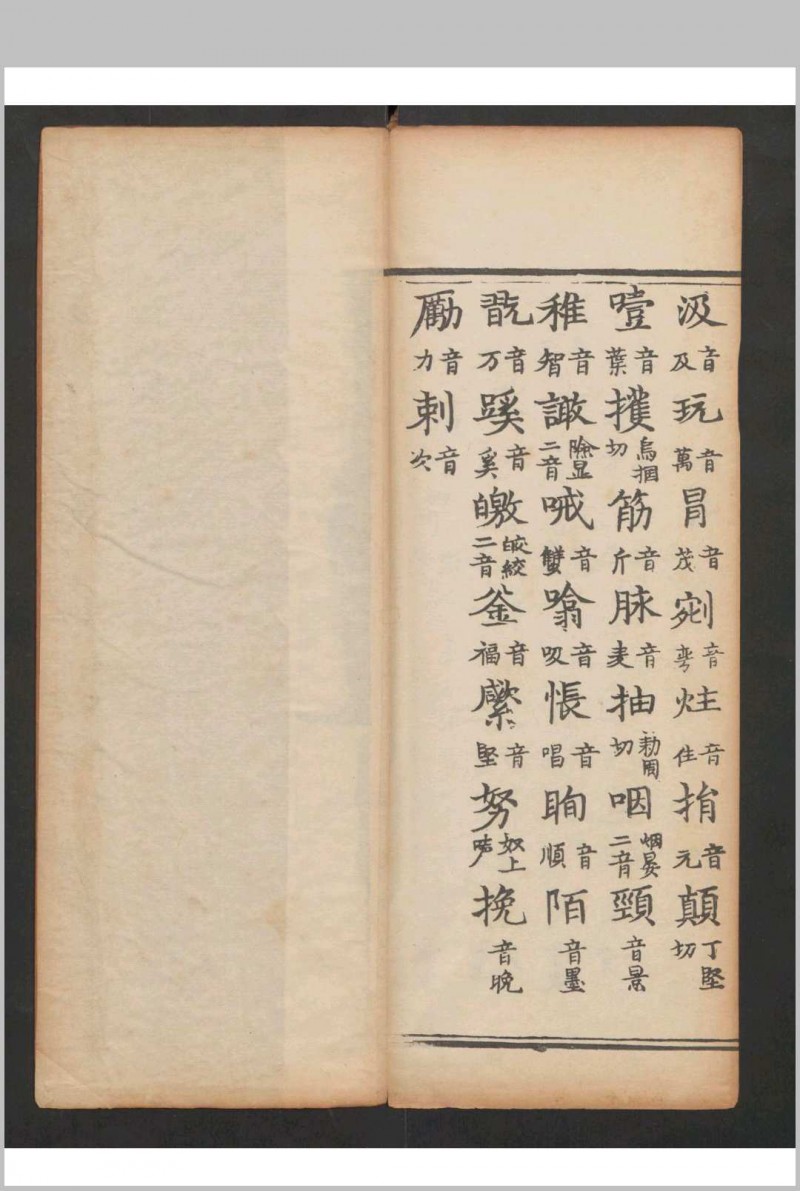 汲音及玩音萬冐音茂剜音弯炷音住揹音元顛丁堅切
噎音葉擭烏摑切筋音斤脉音麦抽勑周切咽烟晏二音頸音景
稚音智譀險显二音喊音蟹噏音吸悵音唱眴音順陌音墨
翫音万蹊音奚皦皎絞二音釜音福音堅努奴上声挽音晚
勵音力刺音次